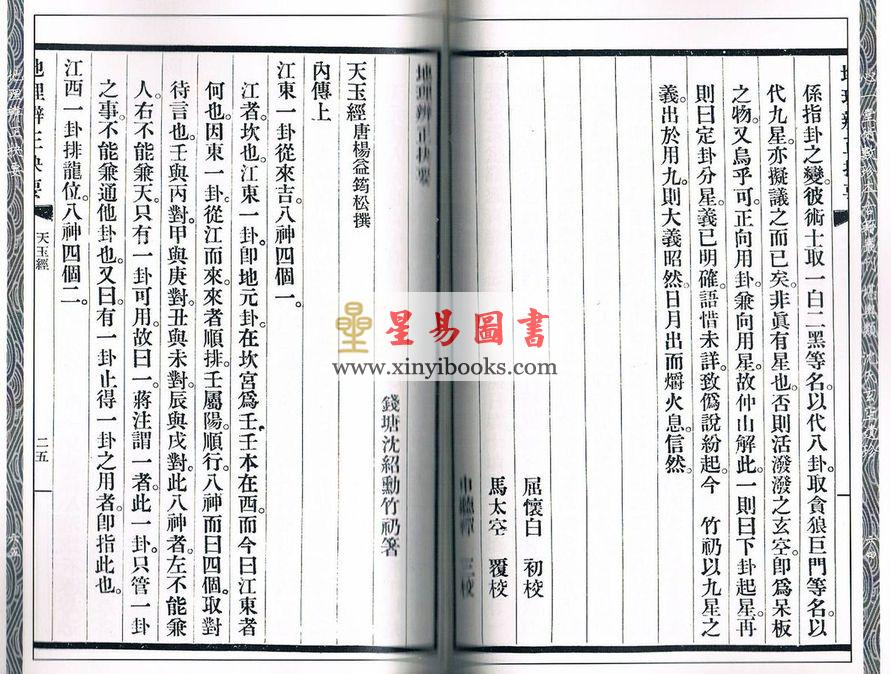 係指卦之變。彼術士取一白二黑等名。以代八卦。取貪狼巨門等名。以
代九星。亦擬議之而已矣。非眞有星也。否則活潑潑之玄空。卽爲呆板
之物。又烏乎可。正向用卦。兼向用星。故仲山解此。一則曰下卦起星。再
則曰定卦分星。義已明確。語惜未詳。致僞說紛起。今　竹礽以九星之
義。出於用九。則大義昭然。日月出而爝火息。信然。
屈懷白　初校
馬太空　覆校
三校
地理辨正抉要
錢塘沈紹勳竹礽箸
天玉經唐楊益筠松撰
內傳上
江東一卦從來吉。八神四個一。
江者坎也。江東一卦。卽地元卦。在坎宮爲壬。壬本在西。而今曰江東者
何也。因東一卦從江而來。來者順排。壬屬陽順行。八神而曰四個。取對
待言也。壬與丙對。甲與庚對。丑與未對。辰與戌對。此八神者。左不能兼
人。右不能兼天。只有一卦可用。故曰一。蔣注謂一者。此一卦只管一卦
之事。不能兼通他卦也。又曰。有一卦止得一卦之用者。卽指此也。
江西一卦排龍位。八神四個二。
地理辨正抉要
天玉經
二五
星易圖書
www.xinyibooks.com